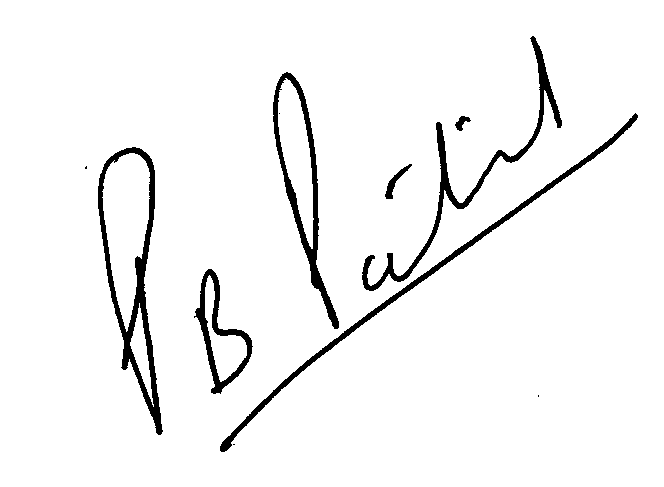 P B Patil